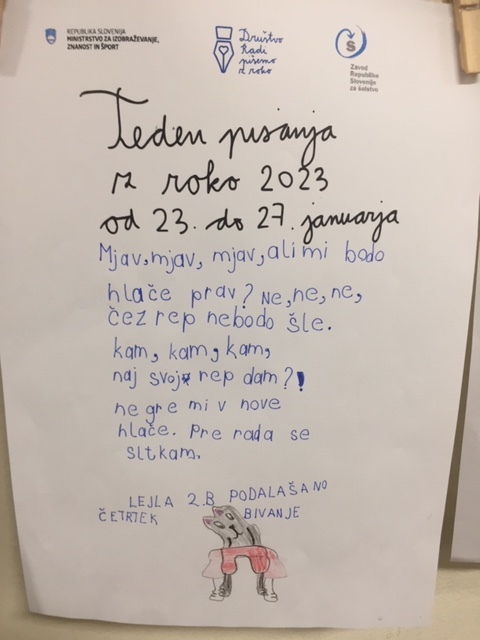 REPUBLIKA SLOVENIJA
MINISTRSTVO ZA IZOBRAŽEVANJE,
ZNANOST IN ŠPORT
Društvo
Radi
pišemo
z roko
Zavod
Republike
Slovenije
za šolstvo
Teden pisanja
z roko 2023
od 23. do 27. januarja
Mjav, mjav, mjav, ali mi bodo
hlače prav? Ne, ne, ne,
čez rep nebodo šle.
kam, kam, kam,
naj svoj rep dam?!
ne gre mi v nove
hlače. Pre rada se
sltkam.
LEJLA 2.B PODALAŠANO
ČETRTEK BIVANJE